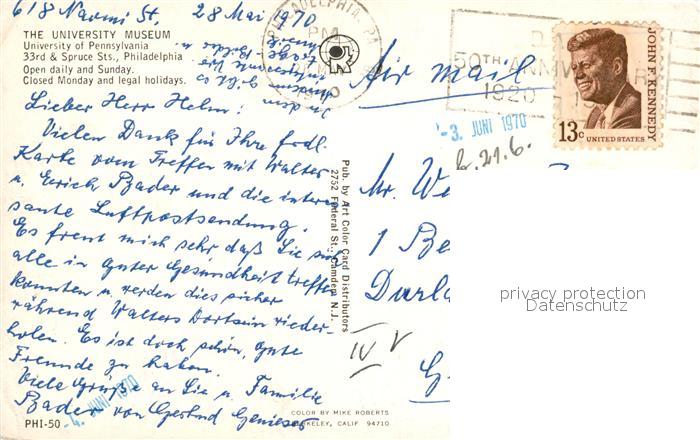 618 Naomi St. 28 Mai 1970
THE UNIVERSITY MUSEUM
University of Pennsylvania
33rd & Spruce Sts., Philadelphia
Open daily and Sunday.
Closed Monday and legal holidays.
Lieber Herr Helm!
Vielen Dank für Ihre frdl.
Karte vom Treffen mit Walter
u. Erich Bader und die interes
sante Luftpostsendung.
Es freut mich sehr daß Sie sich
alle in guter Gesundheit treffen
konnten u. werden dies sicher
während Walters Dortsein wieder-
holen. Es ist doch schön, gute
Freunde zu haben.
Viele Grüße an Sie u. Familie
Bader von Gertrud
-4. JUNI 1970
PHI-50
COLOR BY MIKE ROBERTS
BERKELEY, CALIF 94710
Pub. by Art Color Card Distributors
2752 Federal St., Camden N. J.
PHILADELPHIA, PA
PM
1970
50TH ANNIVERSARY
1920
Air mail
JOHN F. KENNEDY
13c UNITED STATES
-3. JUNI 1970
21.6.
Mr. We
1 Be
Durla
G
IV V
privacy protection
Datenschutz